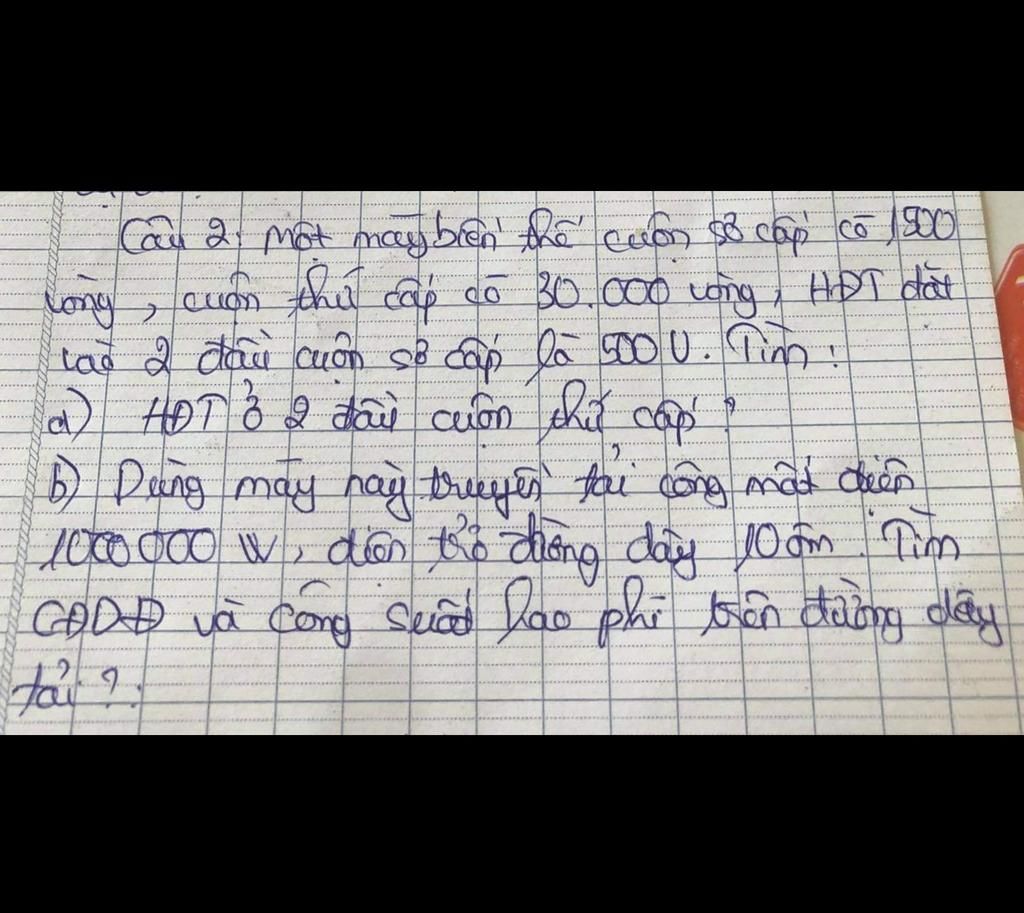 Câu 2: Một máy biến thế cuộn sơ cấp có 1500
vòng, cuộn thứ cấp có 30.000 vòng, HĐT đặt
vào 2 đầu cuộn sơ cấp là 500V. Tìm:
a) HĐT ở 2 đầu cuộn thứ cấp?
b) Dùng máy này truyền tải công mất điện
1000000 W, điện trở đường dây 10 ôm. Tìm
CĐDĐ và công suất hao phí trên đường dây
tải?